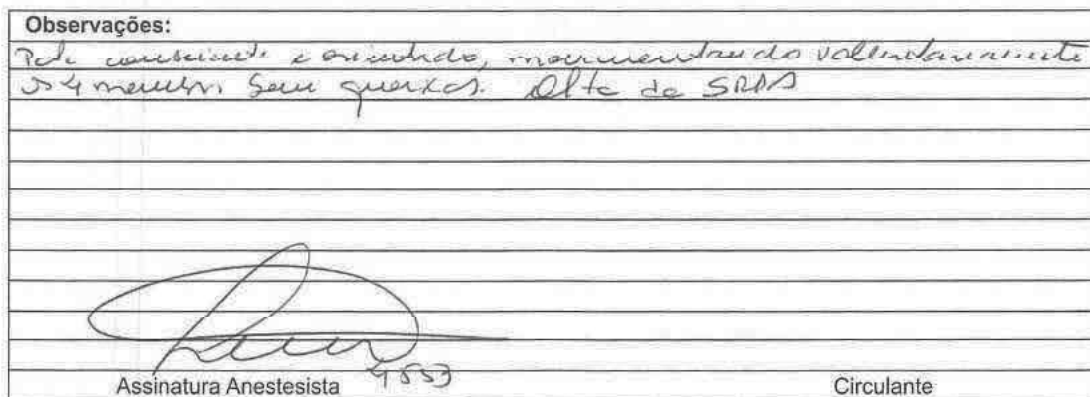 Observações:
Pcte consciente e orientado, movimentando voluntariamente
os 4 membros. Sem queixas. Alta da SRPA
4553
Assinatura Anestesista
Circulante